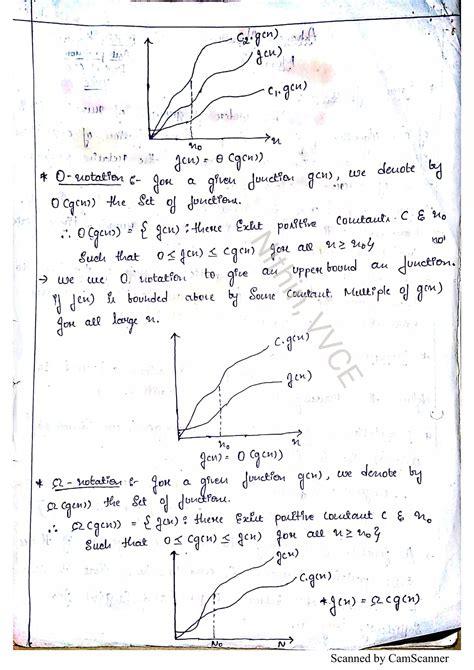 C₂.g(n)
f(n)
C₁.g(n)
n₀ n
f(n) = Θ(g(n))
* O-notation :- for a given function g(n), we denote by
O(g(n)) the set of functions.
∴ O(g(n)) = { f(n) : there Exist positive constants C & n₀
Such that 0 ≤ f(n) ≤ cg(n) for all n ≥ n₀}
→ we use O notation to give an upper bound an function.
if f(n) is bounded above by Some Constant Multiple of g(n)
for all large n.
C.g(n)
f(n)
n₀ n
f(n) = O(g(n))
* Ω-notation :- for a given function g(n), we denote by
Ω(g(n)) the set of functions.
∴ Ω(g(n)) = { f(n) : there Exist positive constant C & n₀
Such that 0 ≤ Cg(n) ≤ f(n) for all n ≥ n₀}
f(n)
C.g(n)
* f(n) = Ω(g(n))
N₀ N
Nithin, VVCE
Scanned by CamScanner